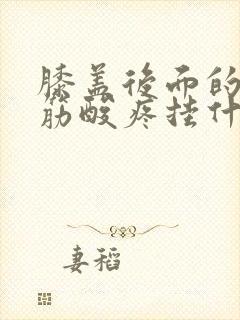 膝盖後面的
筋酸疼挂什
妻稻